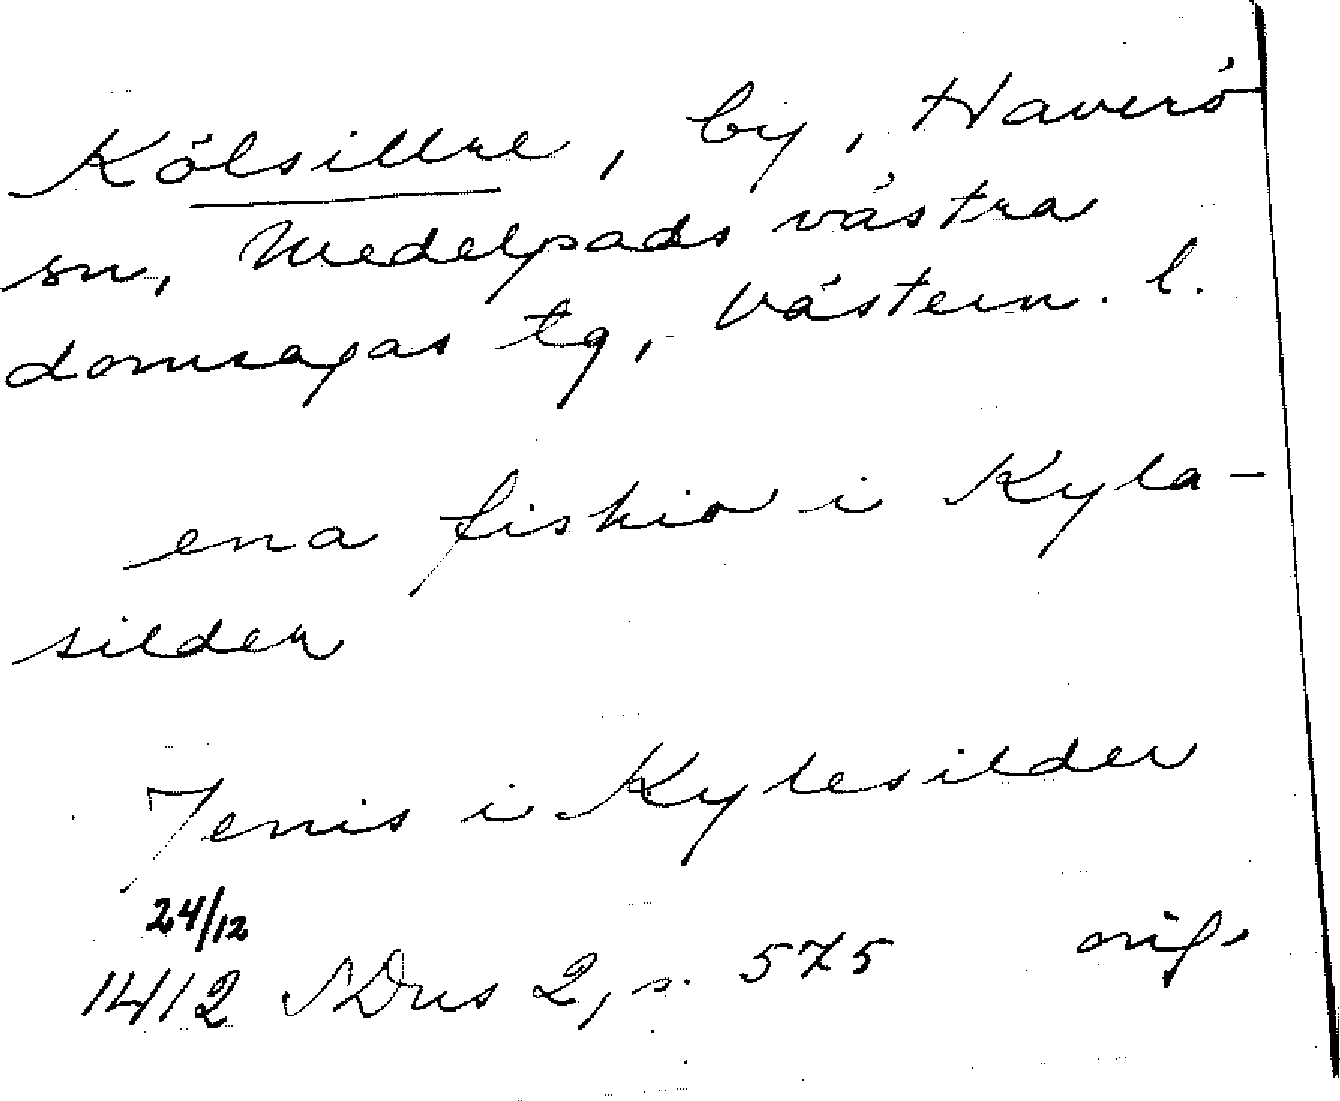 Kölsillre, by, Haverö
sn, Medelpads västra
domsagas tg, Västern. l.
ena fiskio i Kyla-
silder
Jenis i Kylesilder
24/12
1412 SDns 2, s. 575 orig.